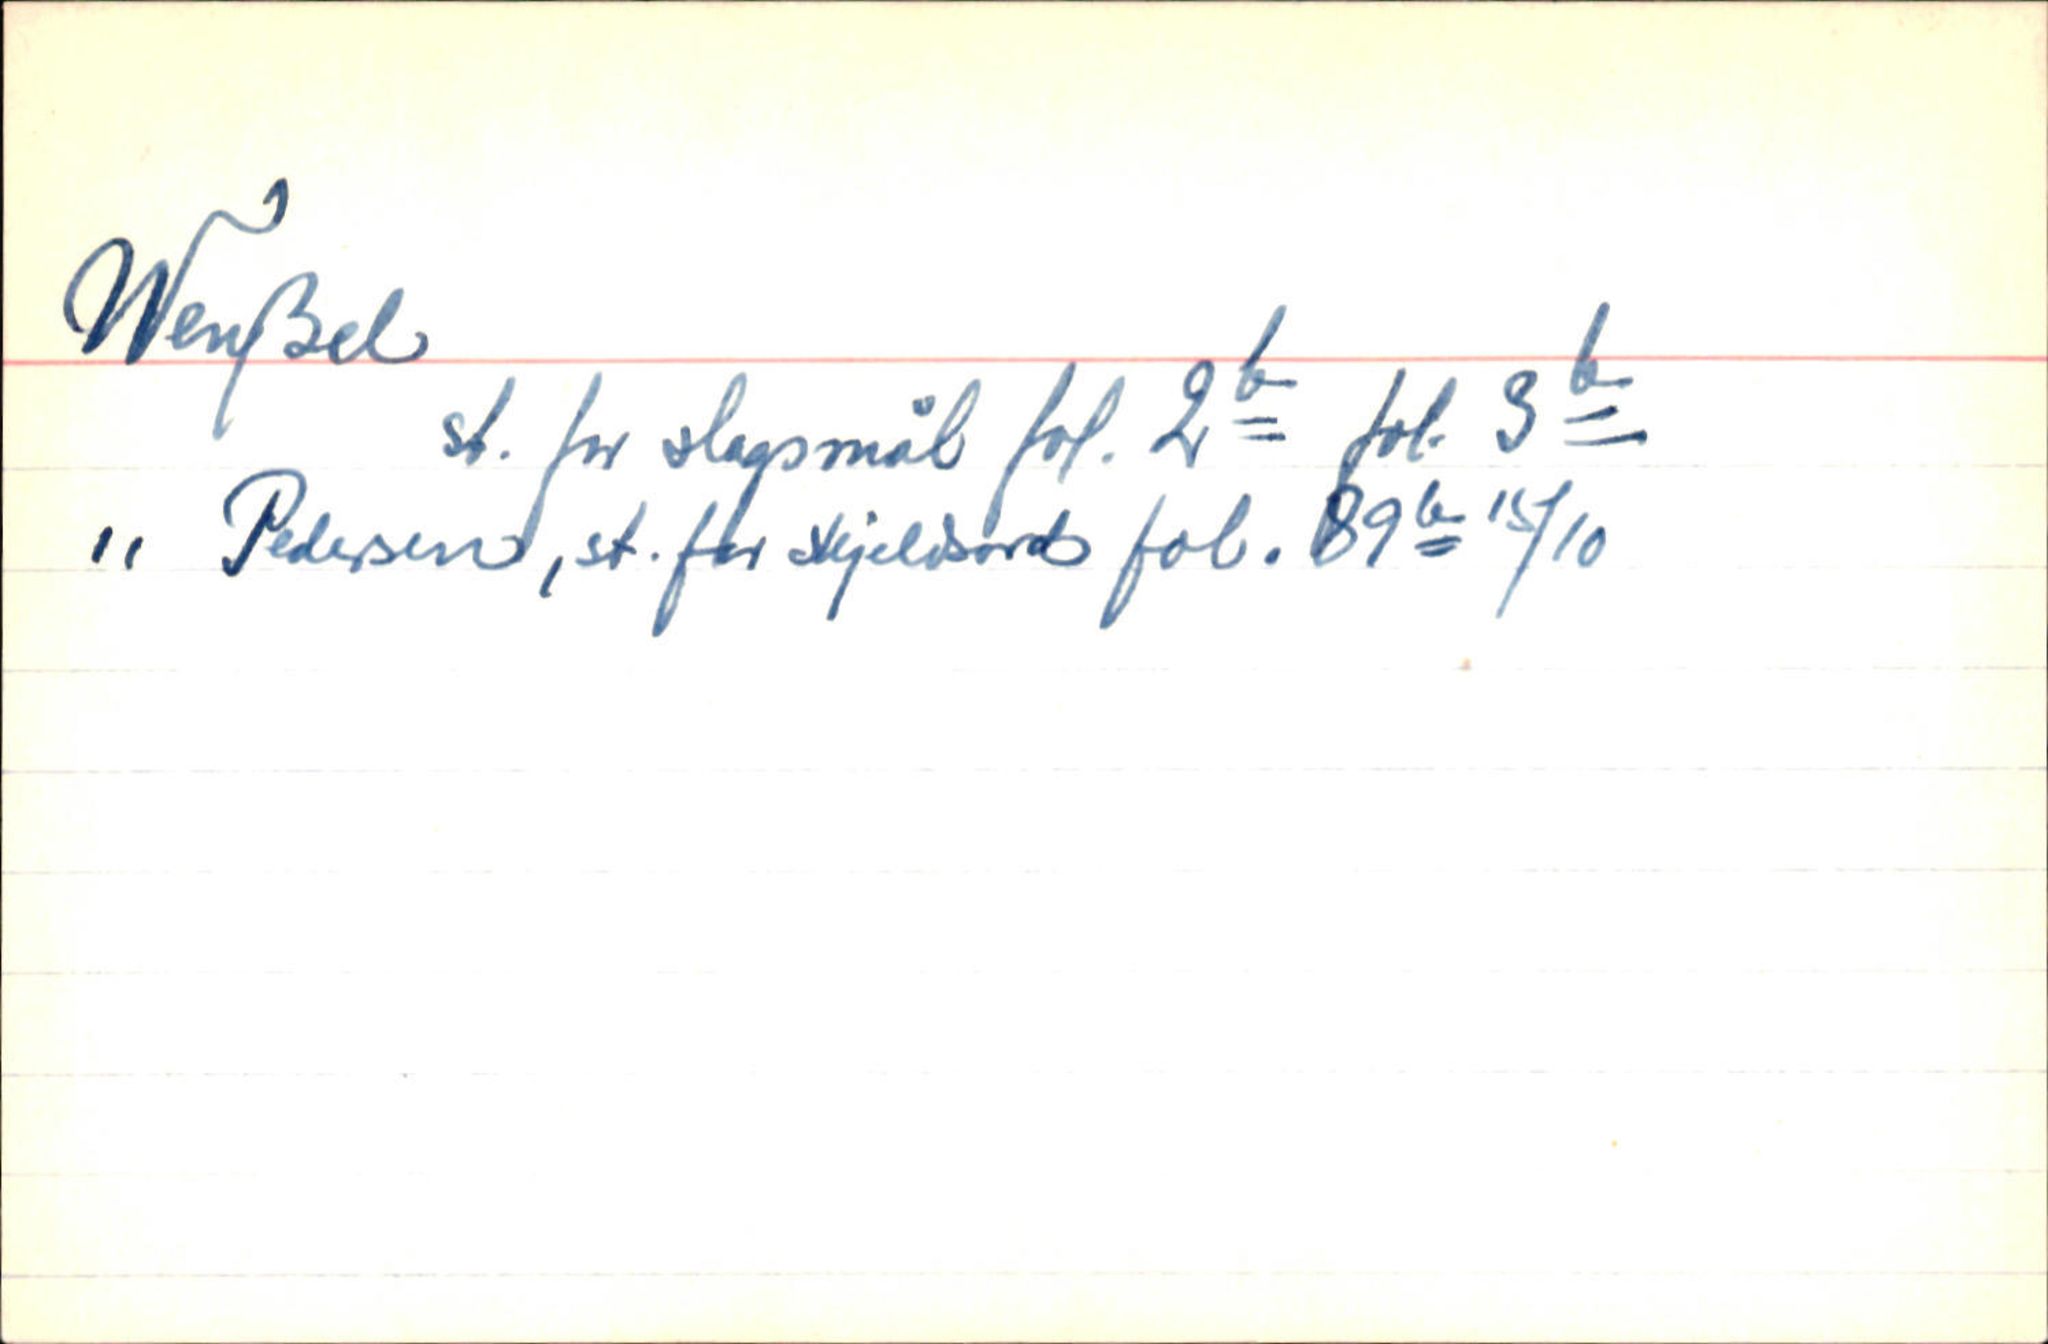 Wenßel
st. for slagsmål fol. 2b fol. 3b
" Pedersen, st. for skjeldsord fol. 89b 15/10